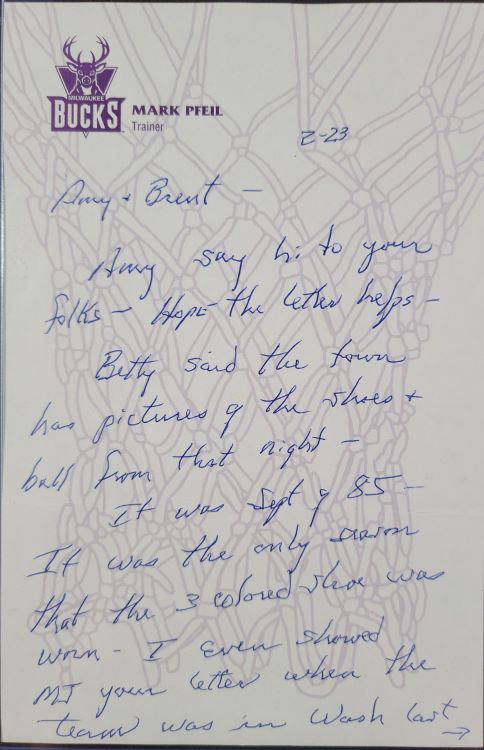 MILWAUKEE
BUCKS
MARK PFEIL
Trainer
2-23
Amy + Brent —
Amy say hi to your
folks — Hope the letter helps —
Betty said the town
has pictures of the shoes +
ball from that night —
It was Sept of 85 —
It was the only season
that the 3 colored shoe was
worn — I even showed
MJ your letter when the
team was in Wash last
→